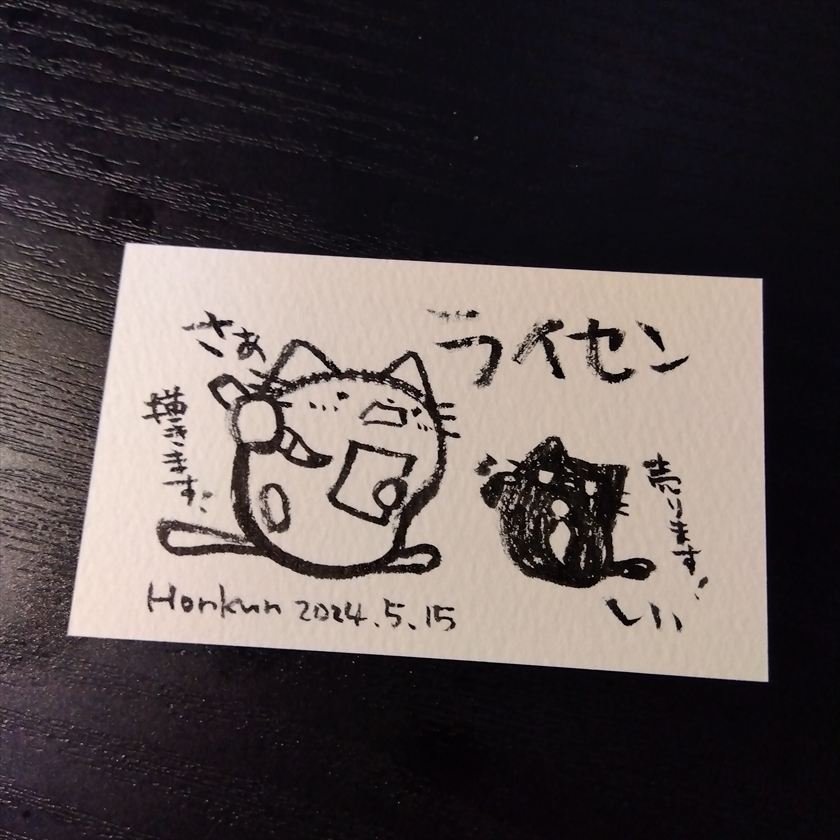 ライセン
さぁ
描きます!
売ります!
Honkun 2024.5.15